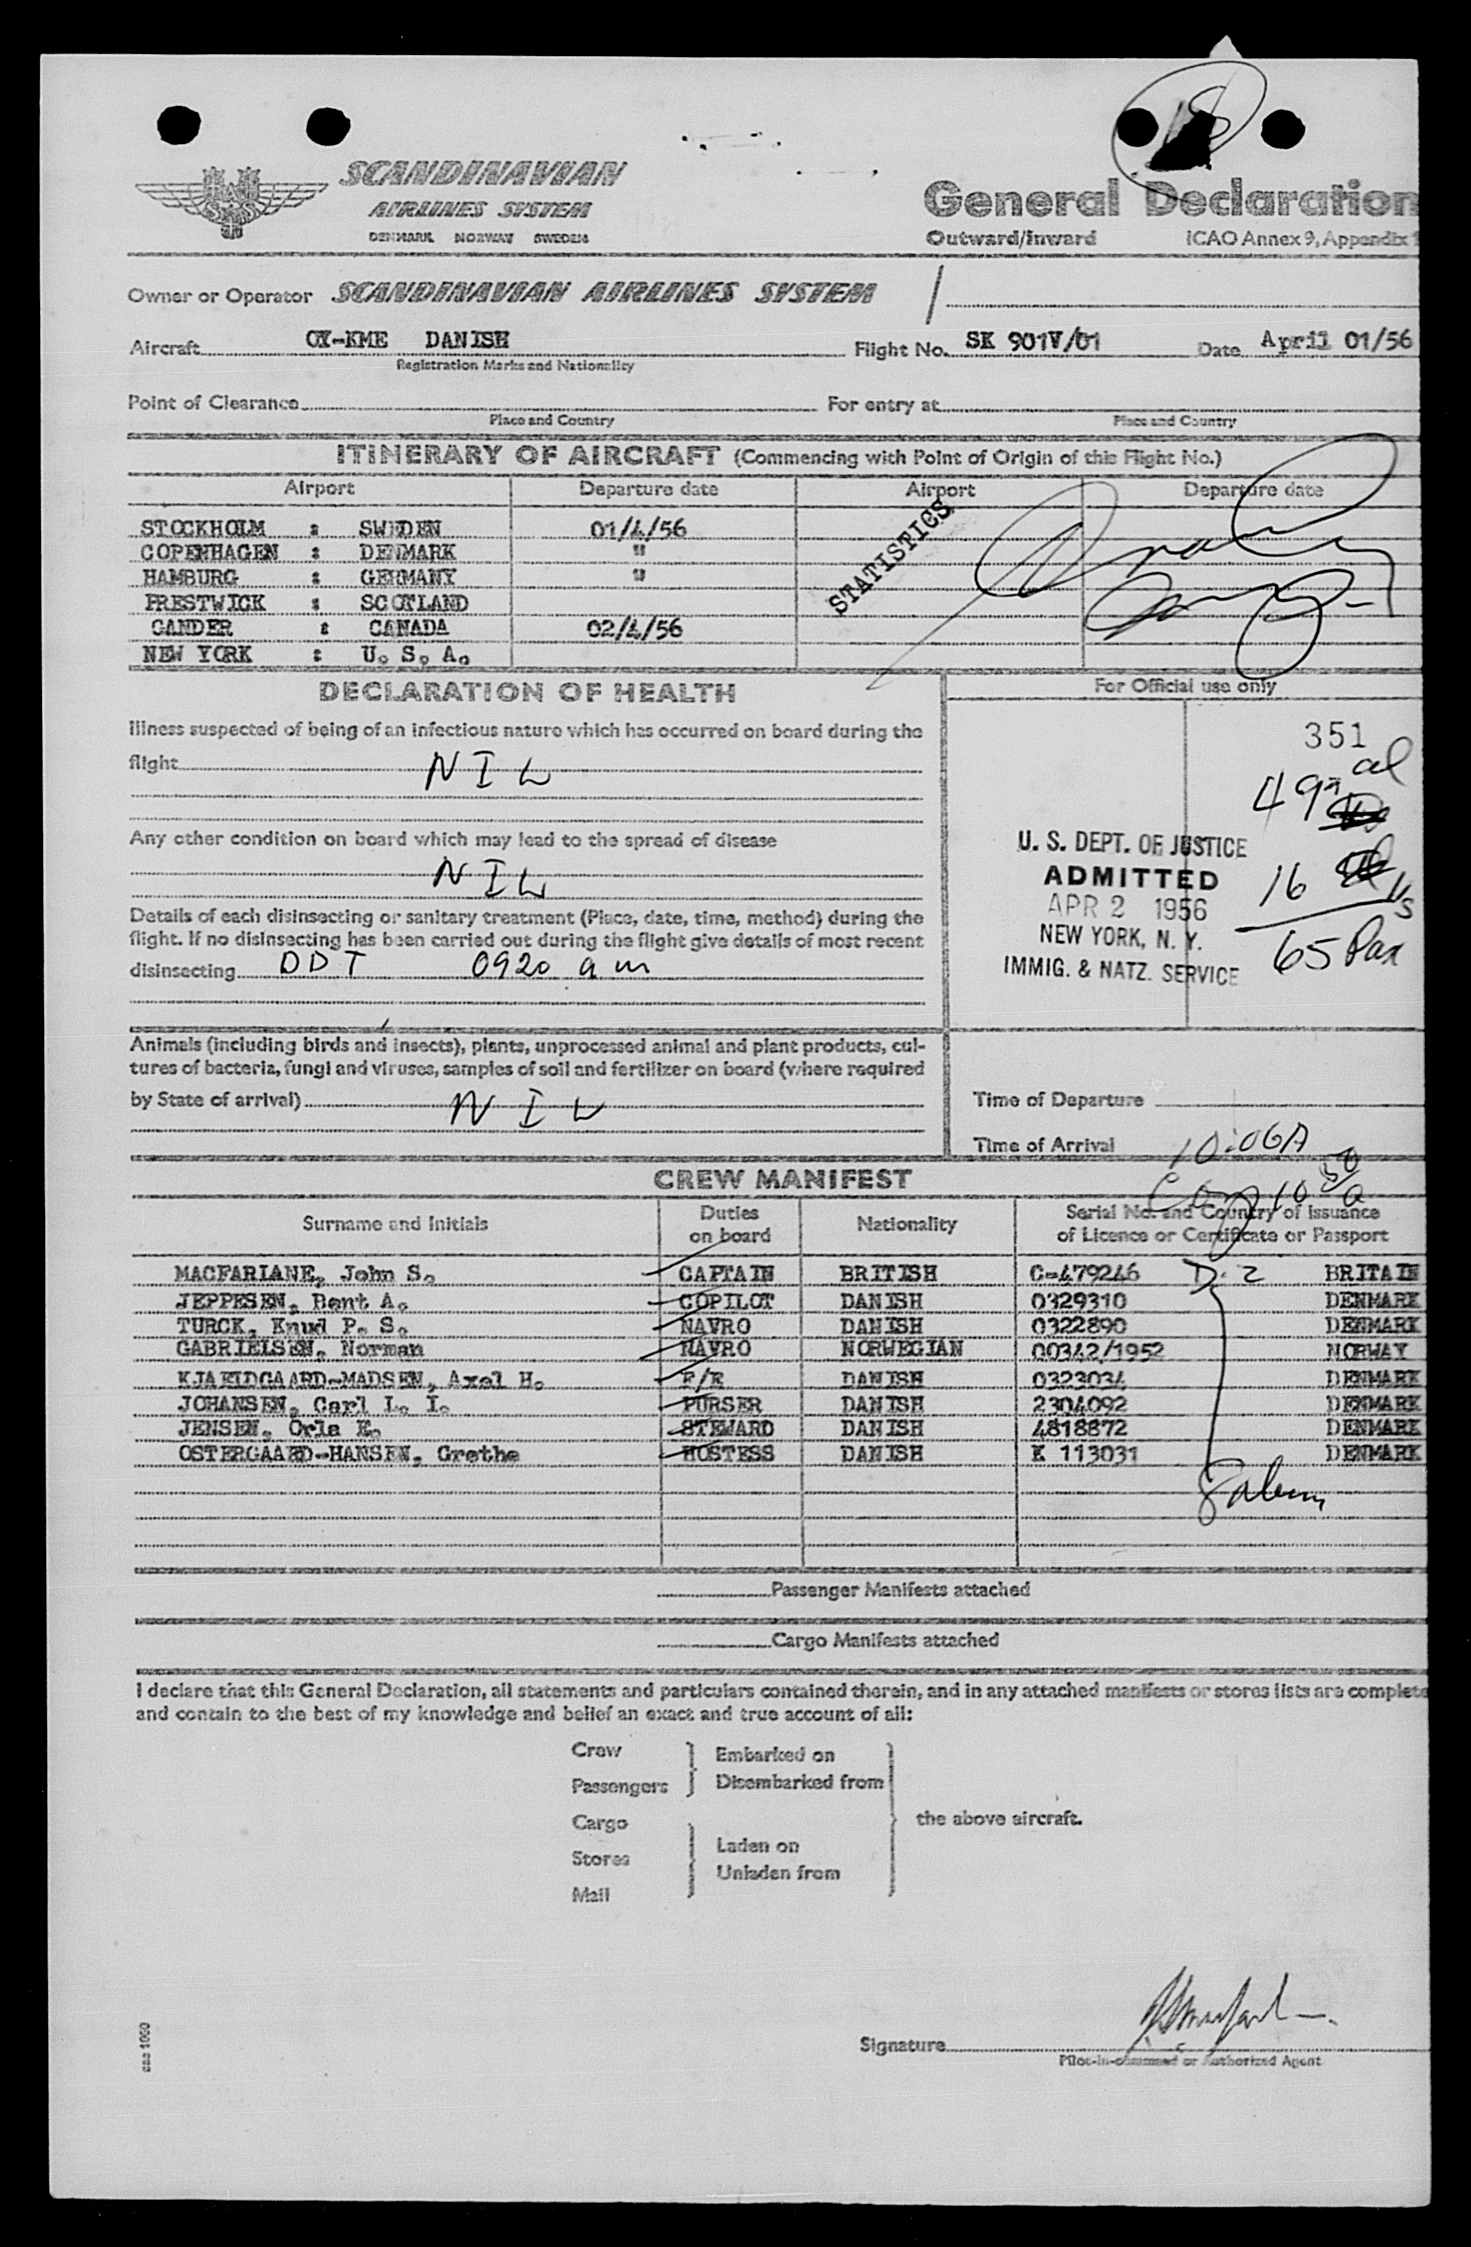 SCANDINAVIAN
AIRLINES SYSTEM
DENMARK NORWAY SWEDEN
General Declaration
Outward/Inward ICAO Annex 9, Appendix 1
Owner or Operator SCANDINAVIAN AIRLINES SYSTEM
Aircraft OY-KME DANISH Flight No. SK 901V/01 Date April 01/56
Registration Marks and Nationality
Point of Clearance For entry at
Place and Country Place and Country
ITINERARY OF AIRCRAFT (Commencing with Point of Origin of this Flight No.)
Airport Departure date Airport Departure date
STOCKHOLM : SWEDEN 01/4/56
COPENHAGEN : DENMARK "
HAMBURG : GERMANY "
PRESTWICK : SCOTLAND
GANDER : CANADA 02/4/56
NEW YORK : U. S. A.
STATISTICS
DECLARATION OF HEALTH
For Official use only
Illness suspected of being of an infectious nature which has occurred on board during the
flight NIL
Any other condition on board which may lead to the spread of disease
NIL
Details of each disinsecting or sanitary treatment (Place, date, time, method) during the
flight. If no disinsecting has been carried out during the flight give details of most recent
disinsecting DDT 0920 am
351
49 al
16 US
65 Pax
U. S. DEPT. OF JUSTICE
ADMITTED
APR 2 1956
NEW YORK, N. Y.
IMMIG. & NATZ. SERVICE
Animals (including birds and insects), plants, unprocessed animal and plant products, cul-
tures of bacteria, fungi and viruses, samples of soil and fertilizer on board (where required
by State of arrival) NIL
Time of Departure
Time of Arrival 10:06A
CREW MANIFEST
Surname and Initials Duties on board Nationality Serial No. and Country of Issuance
of Licence or Certificate or Passport
MACFARLANE, John S. CAPTAIN BRITISH C-479246 D-2 BRITAIN
JEPPESEN, Bent A. COPILOT DANISH 0329310 DENMARK
TURCK, Knud P. S. NAVRO DANISH 0322890 DENMARK
GABRIELSEN, Norman NAVRO NORWEGIAN 00342/1952 NORWAY
KJAELDGAARD-MADSEN, Axel H. F/E DANISH 0323034 DENMARK
JOHANSEN, Carl L. I. PURSER DANISH 2304092 DENMARK
JENSEN, Orla E. STEWARD DANISH 4818872 DENMARK
OSTERGAARD-HANSEN, Grethe HOSTESS DANISH K 113031 DENMARK
Passenger Manifests attached
Cargo Manifests attached
I declare that this General Declaration, all statements and particulars contained therein, and in any attached manifests or stores lists are complete
and contain to the best of my knowledge and belief an exact and true account of all:
Crew
Passengers
Embarked on
Disembarked from
Cargo
Stores
Mail
Laden on
Unladen from
the above aircraft.
Signature
Pilot-in-command or Authorized Agent
sas 1000